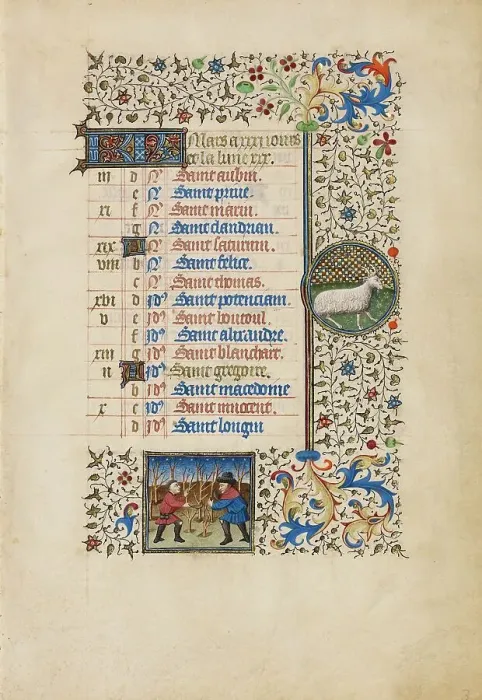 Mars a xxxi iours
et la lune xxx.
iii d N Saint aubin.
e N Saint priue.
xi f N Saint marin.
g N Saint dandrian.
xix A N Saint saturnin.
viii b N Saint felice.
c N Saint thomas.
xvi d Id Saint potenciam.
v e Id Saint boutoul.
f Id Saint alixandre.
xiii g Id Saint blanchart.
ii A Id Saint gregoire.
b Id Saint macedome
x c Id Saint innocent.
d Id Saint longin